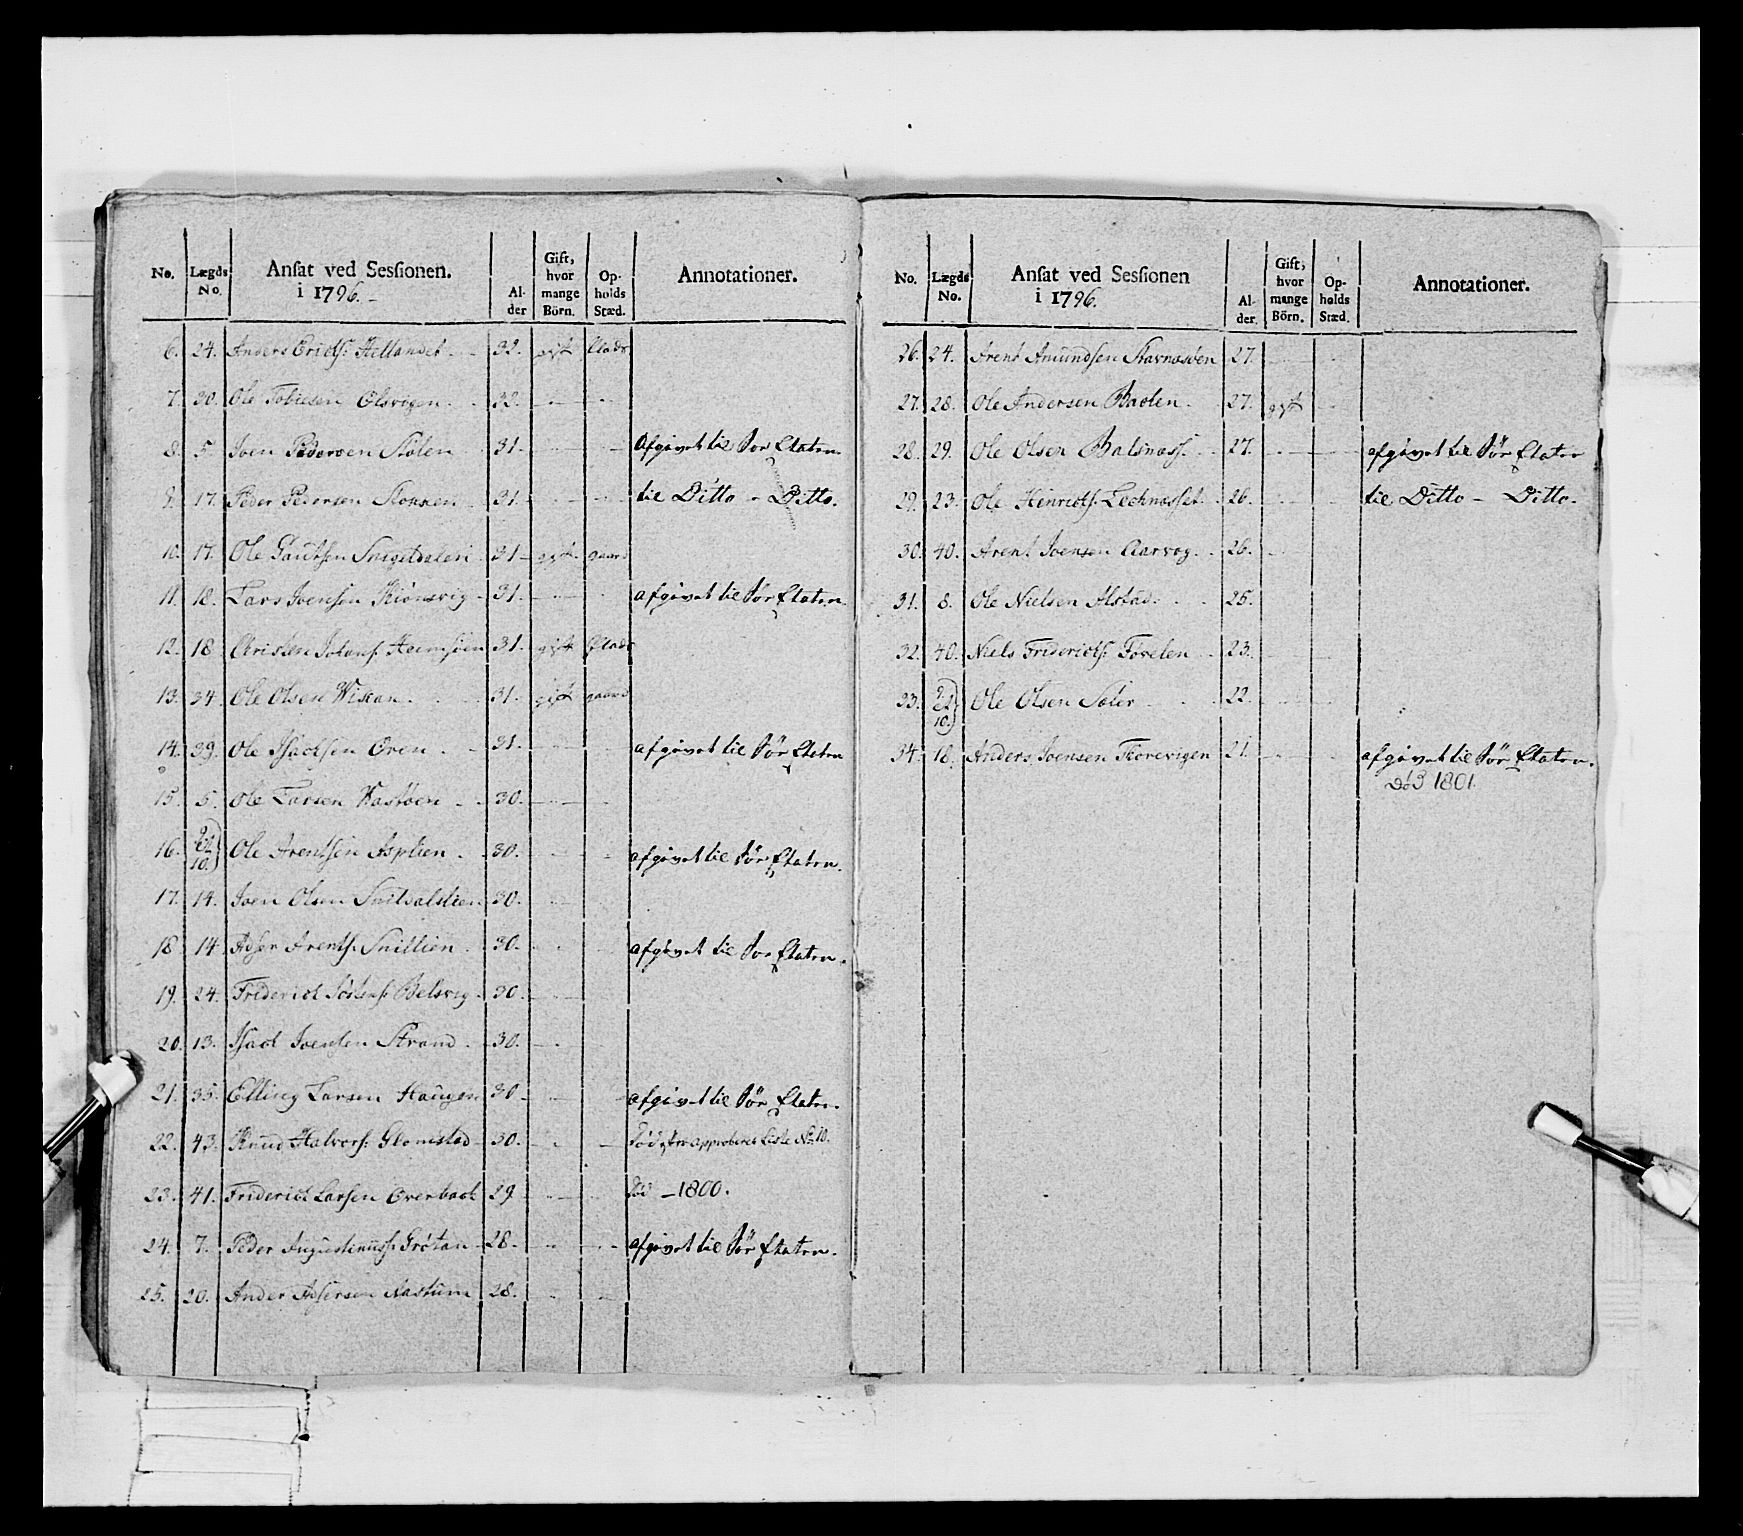 No. Lægds No. Ansat ved Sessionen. i 1796. Alder Gift, hvor mange Börn. Opholds Stæd. Annotationer.
6. 24. Anders Erichs: Hellandet 32. gift Plads
7. 20. Ole Tobiesen Olsvigen 32.
8. 5. Joen Pedersen Stölen 31. Afgivet til Sör Etaten.
9. 17. Peder Pedersen 31. til Ditto - Ditto.
10. 17. Ole Gautsen 31 gift gaard
11. 18. Lars Joensen Kiönsvig 31. afgivet til Sör Etaten.
12. 18 Christen Johans: Hemsöen 31. gift Plads
13. 34. Ole Olsen Wiscan 31. gift gaard
14. 39. Ole Isachsen Oren 31. afgivet til Sör Etaten
15. 5. Ole Larsen Kastöen 30.
16. 22 10. Ole Arentsen Asplien 30. afgivet til Sör Etaten.
17. 14. Joen Olsen 30.
18 14 Adser Arents: Snillien 30. afgivet til Sör Etaten.
19. 24. Friderich Belsvig 30.
20. 13. Isach Joensen Strand 30.
21. 35. Elling Larsen Haugen 30 afgivet til Sör Etaten.
22. 43. Knud Halvors: Glomstad 30. Död efter approberet Liste No. 10.
23. 41. Friderich Larsen Overbach 29 Död - 1800.
24. 7. Peder Augustinuss: Grötan 28. afgivet til Sör Etaten.
25. 20. Ander Adsersen Aastum 28.
No. Lægds No. Ansat ved Sessionen i 1796. Alder. Gift, hvor mange Börn. Opholds Stæd. Annotationer.
26. 24. Arent Amundsen Stavnesöen 27.
27. 28. Ole Andersen Baclen 27. gift
28. 29. Ole Olsen Balsness. 27. afgivet til Sör Etaten
29. 23. Ole Henrichs: Lechnesset 26. til Ditto - Ditto.
30. 40. Arent Joensen Aarvog 26.
31. 8. Ole Nielsen Alstad. 25.
32. 40. Niels Friderichs: Forelen 23.
33. 22 10. Ole Olsen Soler 22.
34. 18. Anders Joensen Taarevigen 21. afgivet til Sör Etaten.
Död 1801.